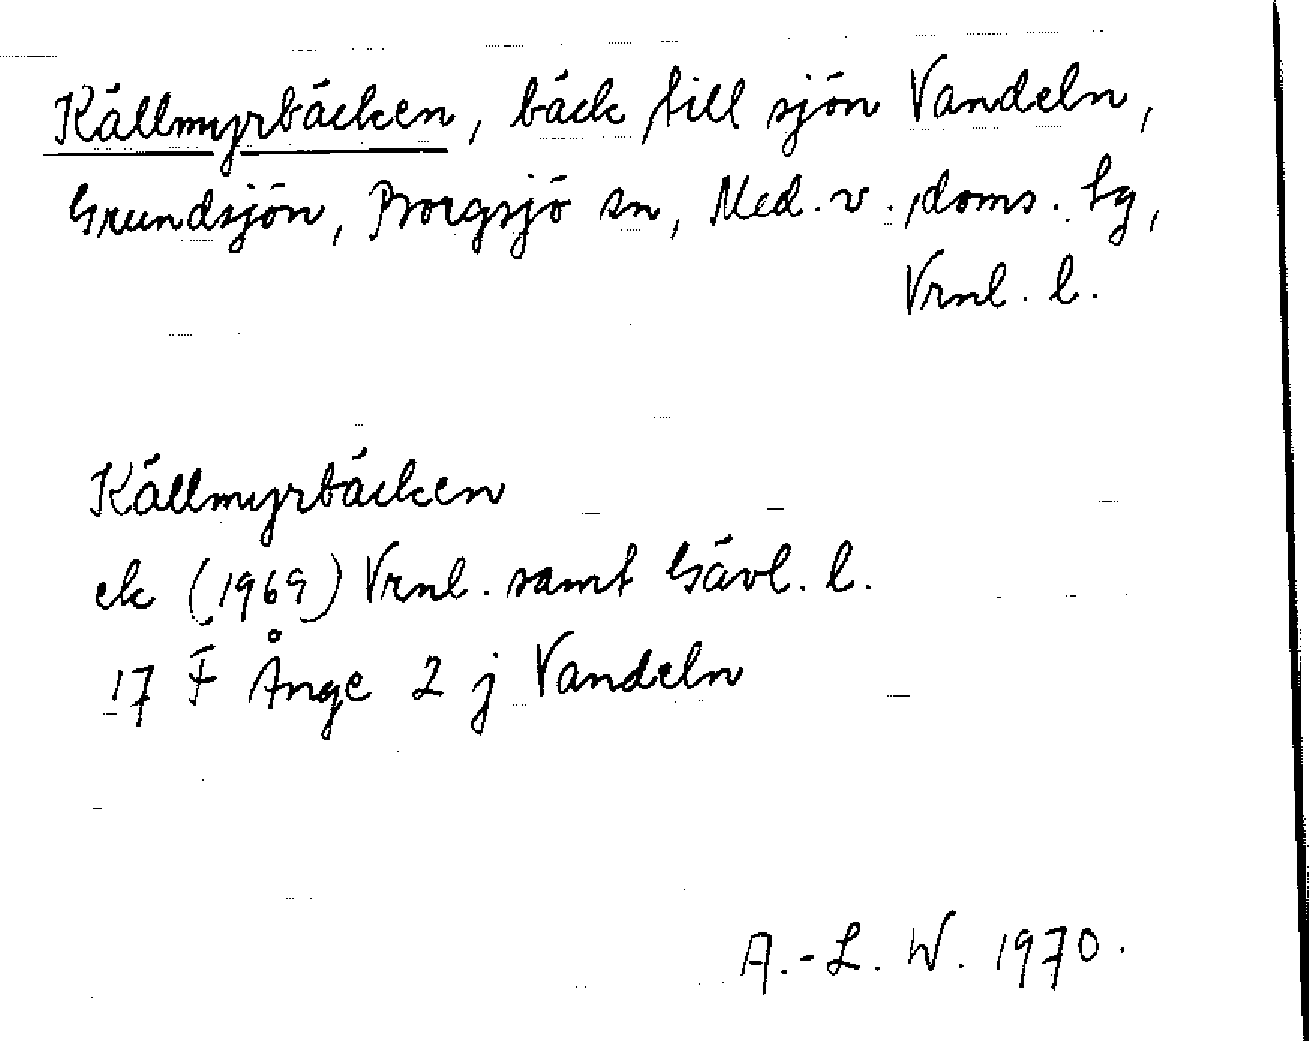 Källmyrbäcken, bäck till sjön Vandeln,
Grundsjön, Borgsjö sn, Med. v. doms. tg,
Vrnl. l.
Källmyrbäcken
ek (1969) Vrnl. samt Gävl. l.
17 F Ånge 2 j Vandeln
A.-L. W. 1970.